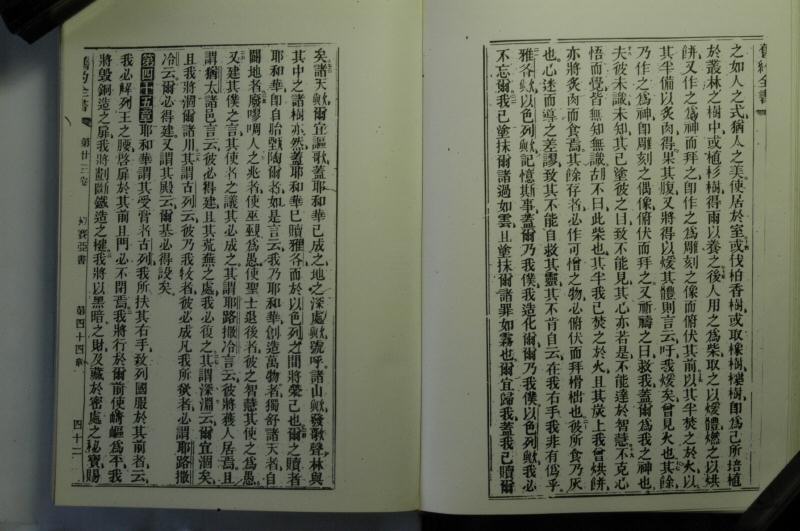 舊約全書
之如人之式猶人之美使居於室或伐柏香樹或取橡樹櫪樹即為己所培植
於叢林之樹中或植杉樹得雨以養之後人用之為柴取之以煖體燃之以烘
餅又作之為神而拜之即作之為雕刻之像而俯伏其前以其半焚之於火以
其半備以炙肉得果其腹又將得以煖其體則言云吁我煖矣曾見火也其餘
乃作之為神即雕刻之偶像俯伏而拜之又祈禱之曰救我蓋爾為我之神也
夫彼未識未知其已塗彼之目致不能見其心亦若是不能達於智慧不克心
悟而覺皆無知無識胡不曰此柴也其半我已焚之於火且其炭上我曾烘餅
亦將炙肉而食焉其餘存者必作可憎之物必俯伏而拜榾柮也彼所食乃灰
也心迷而導之差謬致其不能自救其靈其不肯自云在我右手我非有偽乎
雅各歟以色列歟記憶斯事蓋爾乃我僕我造化爾爾乃我僕以色列歟我必
不忘爾我已塗抹爾諸過如雲且塗抹爾諸罪如霧也爾宜歸我蓋我已贖爾
矣諸天歟爾宜謳歌蓋耶和華已成之地之深處歟號呼諸山歟發歌聲林與
其中之諸樹亦然蓋耶和華已贖雅各而於以色列之間將榮己也爾之贖者
耶和華即自胎甄陶爾者如是言云我乃耶和華創造萬物者獨舒諸天者自
闢地者廢謬謂人之兆者使巫覡為愚使聖士退後者彼之智慧其使之為愚
又建其僕之言其使者之議其必成之其謂耶路撒冷言云彼將獲人居焉且
謂猶太諸邑言云彼必得建且其荒蕪之處我必復之其謂深淵云爾宜涸矣
且我將涸爾諸川其謂古列云彼乃我牧者彼必成凡我所欲者必謂耶路撒
冷云爾必得建又謂其殿云爾基必得設矣
第四十五章耶和華謂其受膏者古列我所扶其右手致列國服於其前者云
我必解列王之腰啓扉於其前且門必不閉焉我將行於爾前使崎嶇為平我
將毀銅造之扉我將劃斷鐵造之楗我將以黑暗之財及藏於密處之秘寶賜
舊約全書
第廿三卷
以賽亞書
第四十四章
四十二